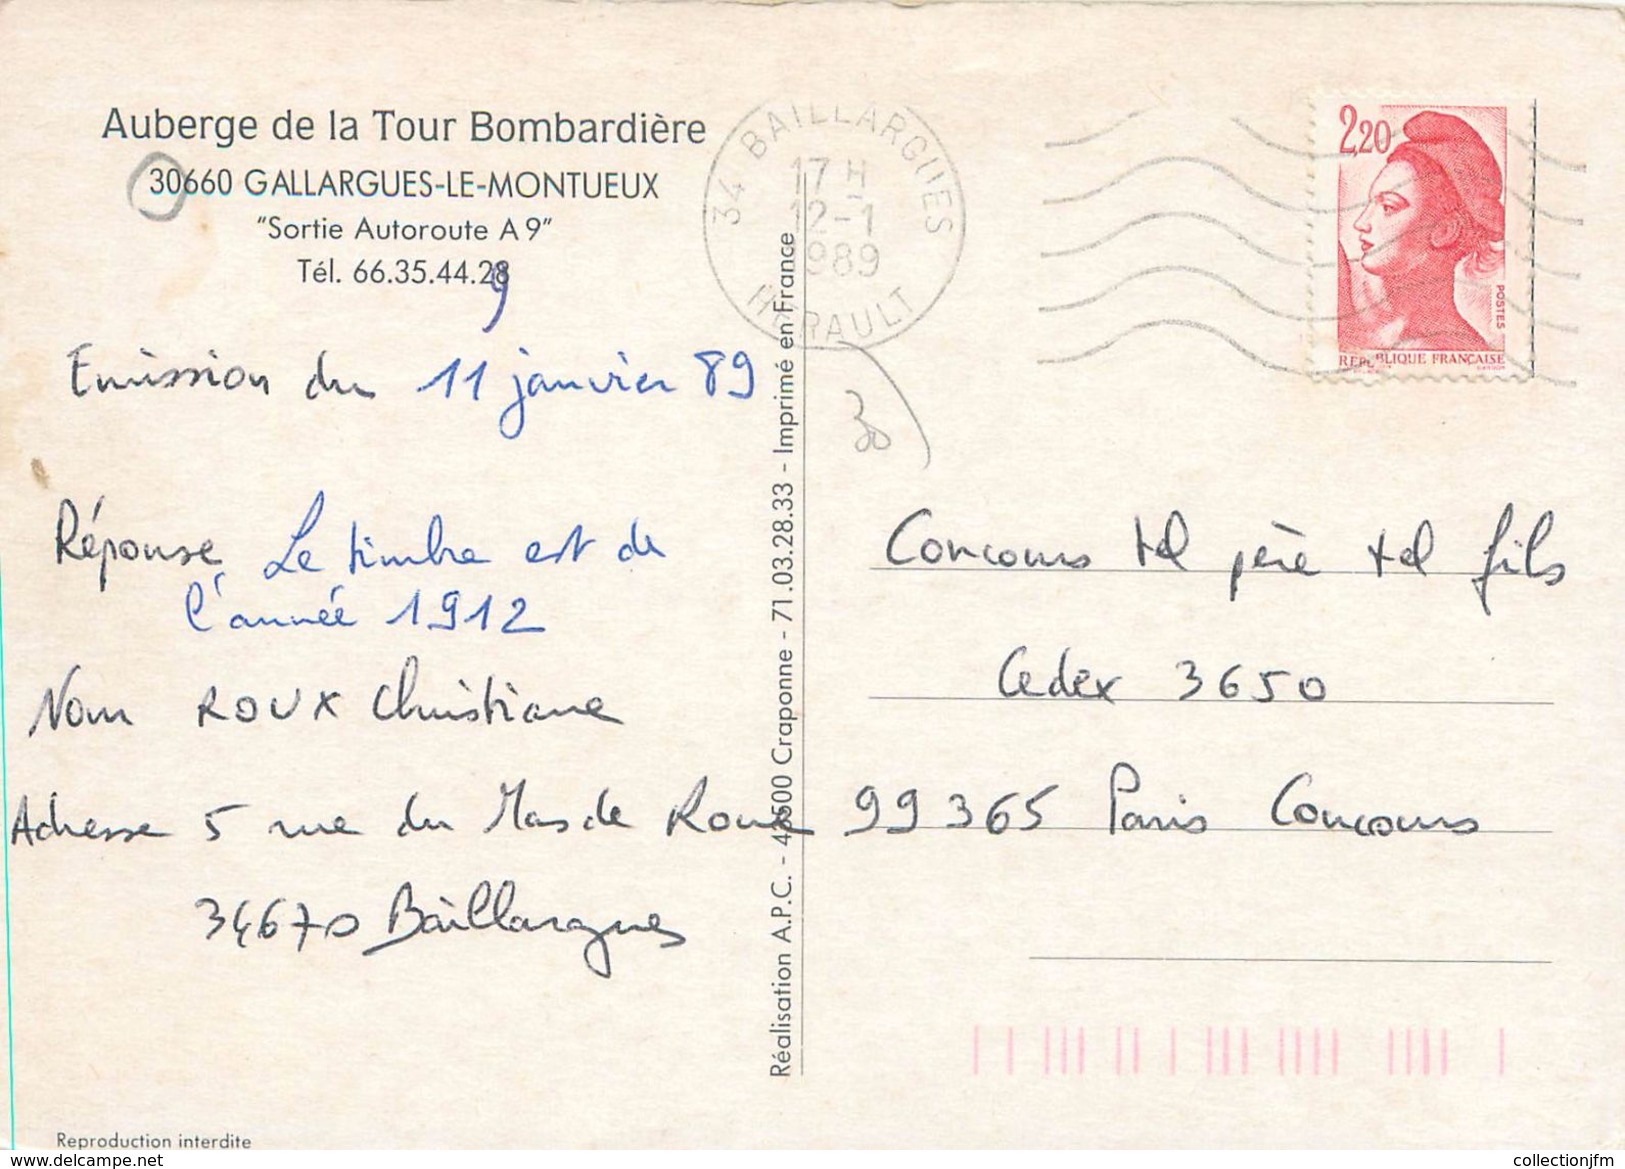 Auberge de la Tour Bombardière
30660 GALLARGUES-LE-MONTUEUX
"Sortie Autoroute A9"
Tél. 66.35.44.28
9
Emission du 11 janvier 89
Réponse Le timbre est de
l'année 1912
Nom ROUX Christiane
Adresse 5 rue du Mas de Roux
34670 Baillargues
Reproduction interdite
Réalisation A.P.C. - 42500 Craponne - 71.03.28.33 - Imprimé en France
34 BAILLARGUES
17 H
12-1
1989
HERAULT
2,20
POSTES
REPUBLIQUE FRANÇAISE
GANDON
30
Concours tel père tel fils
Cedex 3650
99365 Paris Concours
collectionjfm